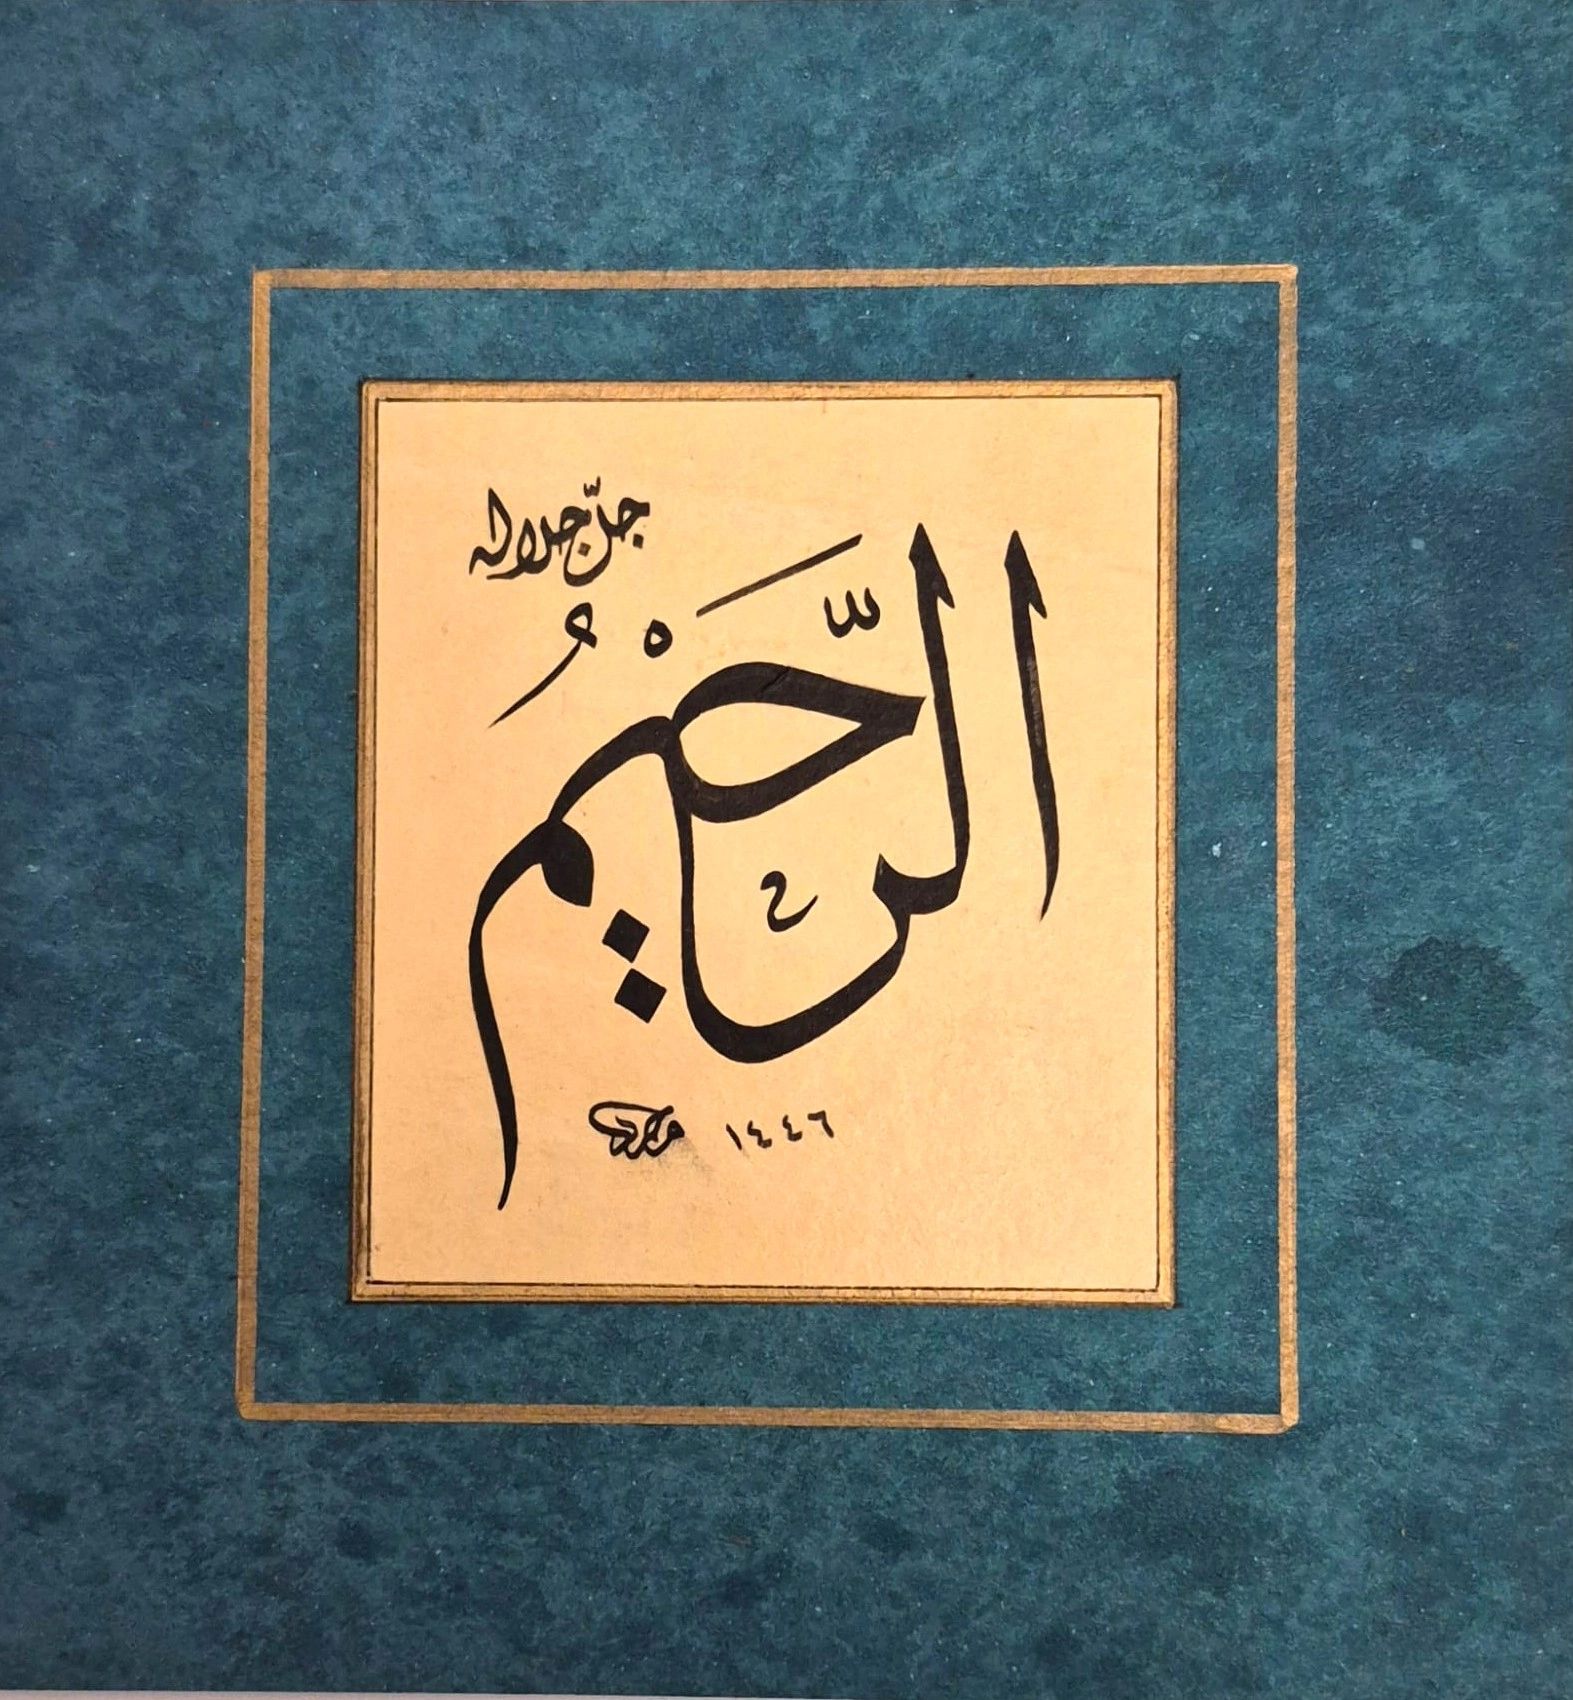 جلّ جلاله
الرّحيْمُ
١٤٤٦